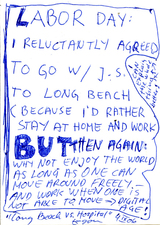 LABOR DAY:
I RELUCTANTLY AGREED
TO GO W/ J.S.
TO LONG BEACH
(BECAUSE I'D RATHER
STAY AT HOME AND WORK
BUT THEN AGAIN:
WHY NOT ENJOY THE WORLD
AS LONG AS ONE CAN
MOVE AROUND FREELY—
AND WORK WHEN ONE IS
NOT ABLE TO MOVE → DIGITAL
AGE!
"Long Beach vs. Hospital"